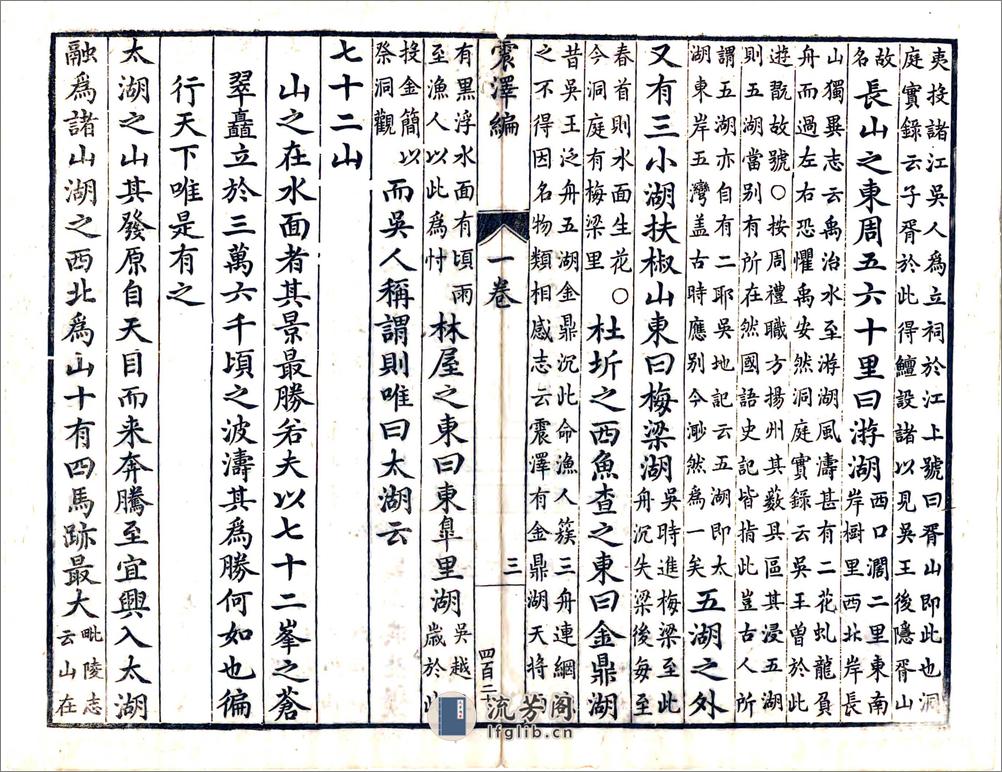 夷投諸江吳人爲立祠於江上號曰胥山即此也洞
庭實錄云子胥於此得鱣設諸以見吳王後隱胥山
故名長山之東周五六十里曰游湖西口濶二里東南岸樹里西北岸長
山獨異志云禹治水至游湖風濤甚有二花虬龍負
舟而過左右恐懼禹安然洞庭實錄云吳王曾於此
遊翫故號○按周禮職方揚州其藪具區其浸五湖
則五湖當別有所在然國語史記皆指此豈古人所
謂五湖亦自有二耶吳地記云五湖即太湖東岸五灣盖古時應別今渺然爲一矣五湖之外
又有三小湖扶椒山東曰梅梁湖吳時進梅梁至此舟沉失梁後每至
春首則水面生花○今洞庭有梅梁里杜圻之西魚查之東曰金鼎湖
昔吳王泛舟五湖金鼎沉此命漁人簇三舟連網
之不得因名物類相感志云震澤有金鼎湖天將
震澤編 一卷 三 四百二
有黑浮水面有頃雨至漁人以此爲忖林屋之東曰東臯里湖吳越歲於此
投金簡以祭洞觀而吳人稱謂則唯曰太湖云
七十二山
山之在水面者其景最勝若夫以七十二峯之蒼
翠矗立於三萬六千頃之波濤其爲勝何如也徧
行天下唯是有之
太湖之山其發原自天目而来奔騰至宜興入太湖
融爲諸山湖之西北爲山十有四馬跡最大毗陵志云山在
流芳阁
lfglib.cn